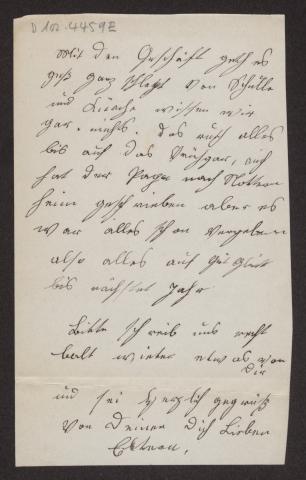 D 102.4459E
Mit den Geschäft geht es
ganz schlecht von Schulle
und Kirche wissen wir
gar nichts. das auch alles
bis auf das Frühjar, auch
hat der Papa nach
heim geschrieben aber es
war alles schon vergeben
also alles auf gut Glück
bis nächstes Jahr
Bitte schreib uns recht
balt wieder etwas von
Dir
und sei Herzlich gegrüßt
von Deinen Dich Lieben
Eltern,